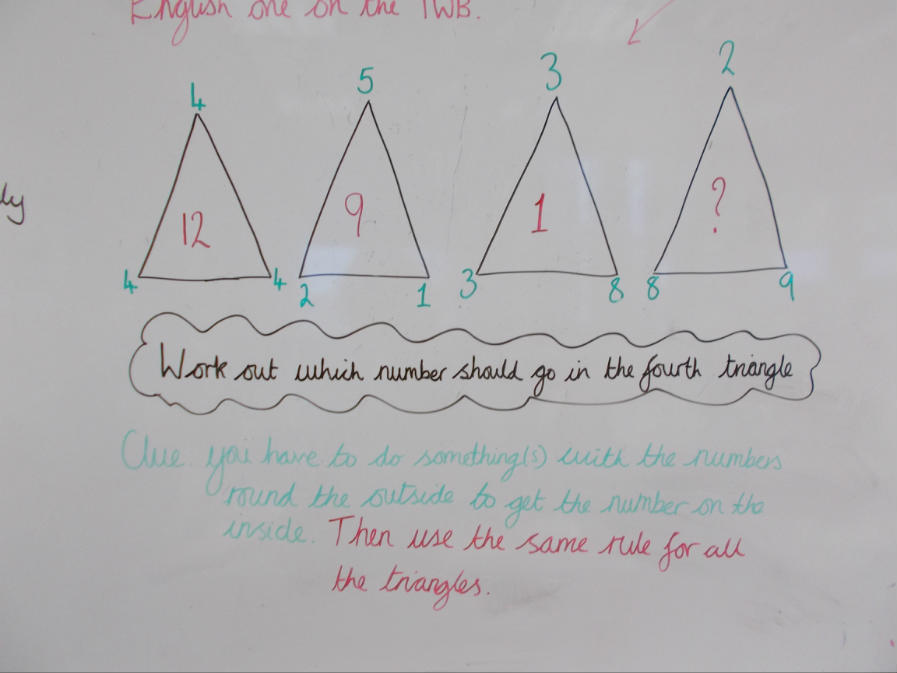 English one on the IWB.
4 5 3 2
12 9 1 ?
4 4 2 1 3 8 8 9
Work out which number should go in the fourth triangle
Clue. you have to do something(s) with the numbers
round the outside to get the number on the
inside. Then use the same rule for all
the triangles.